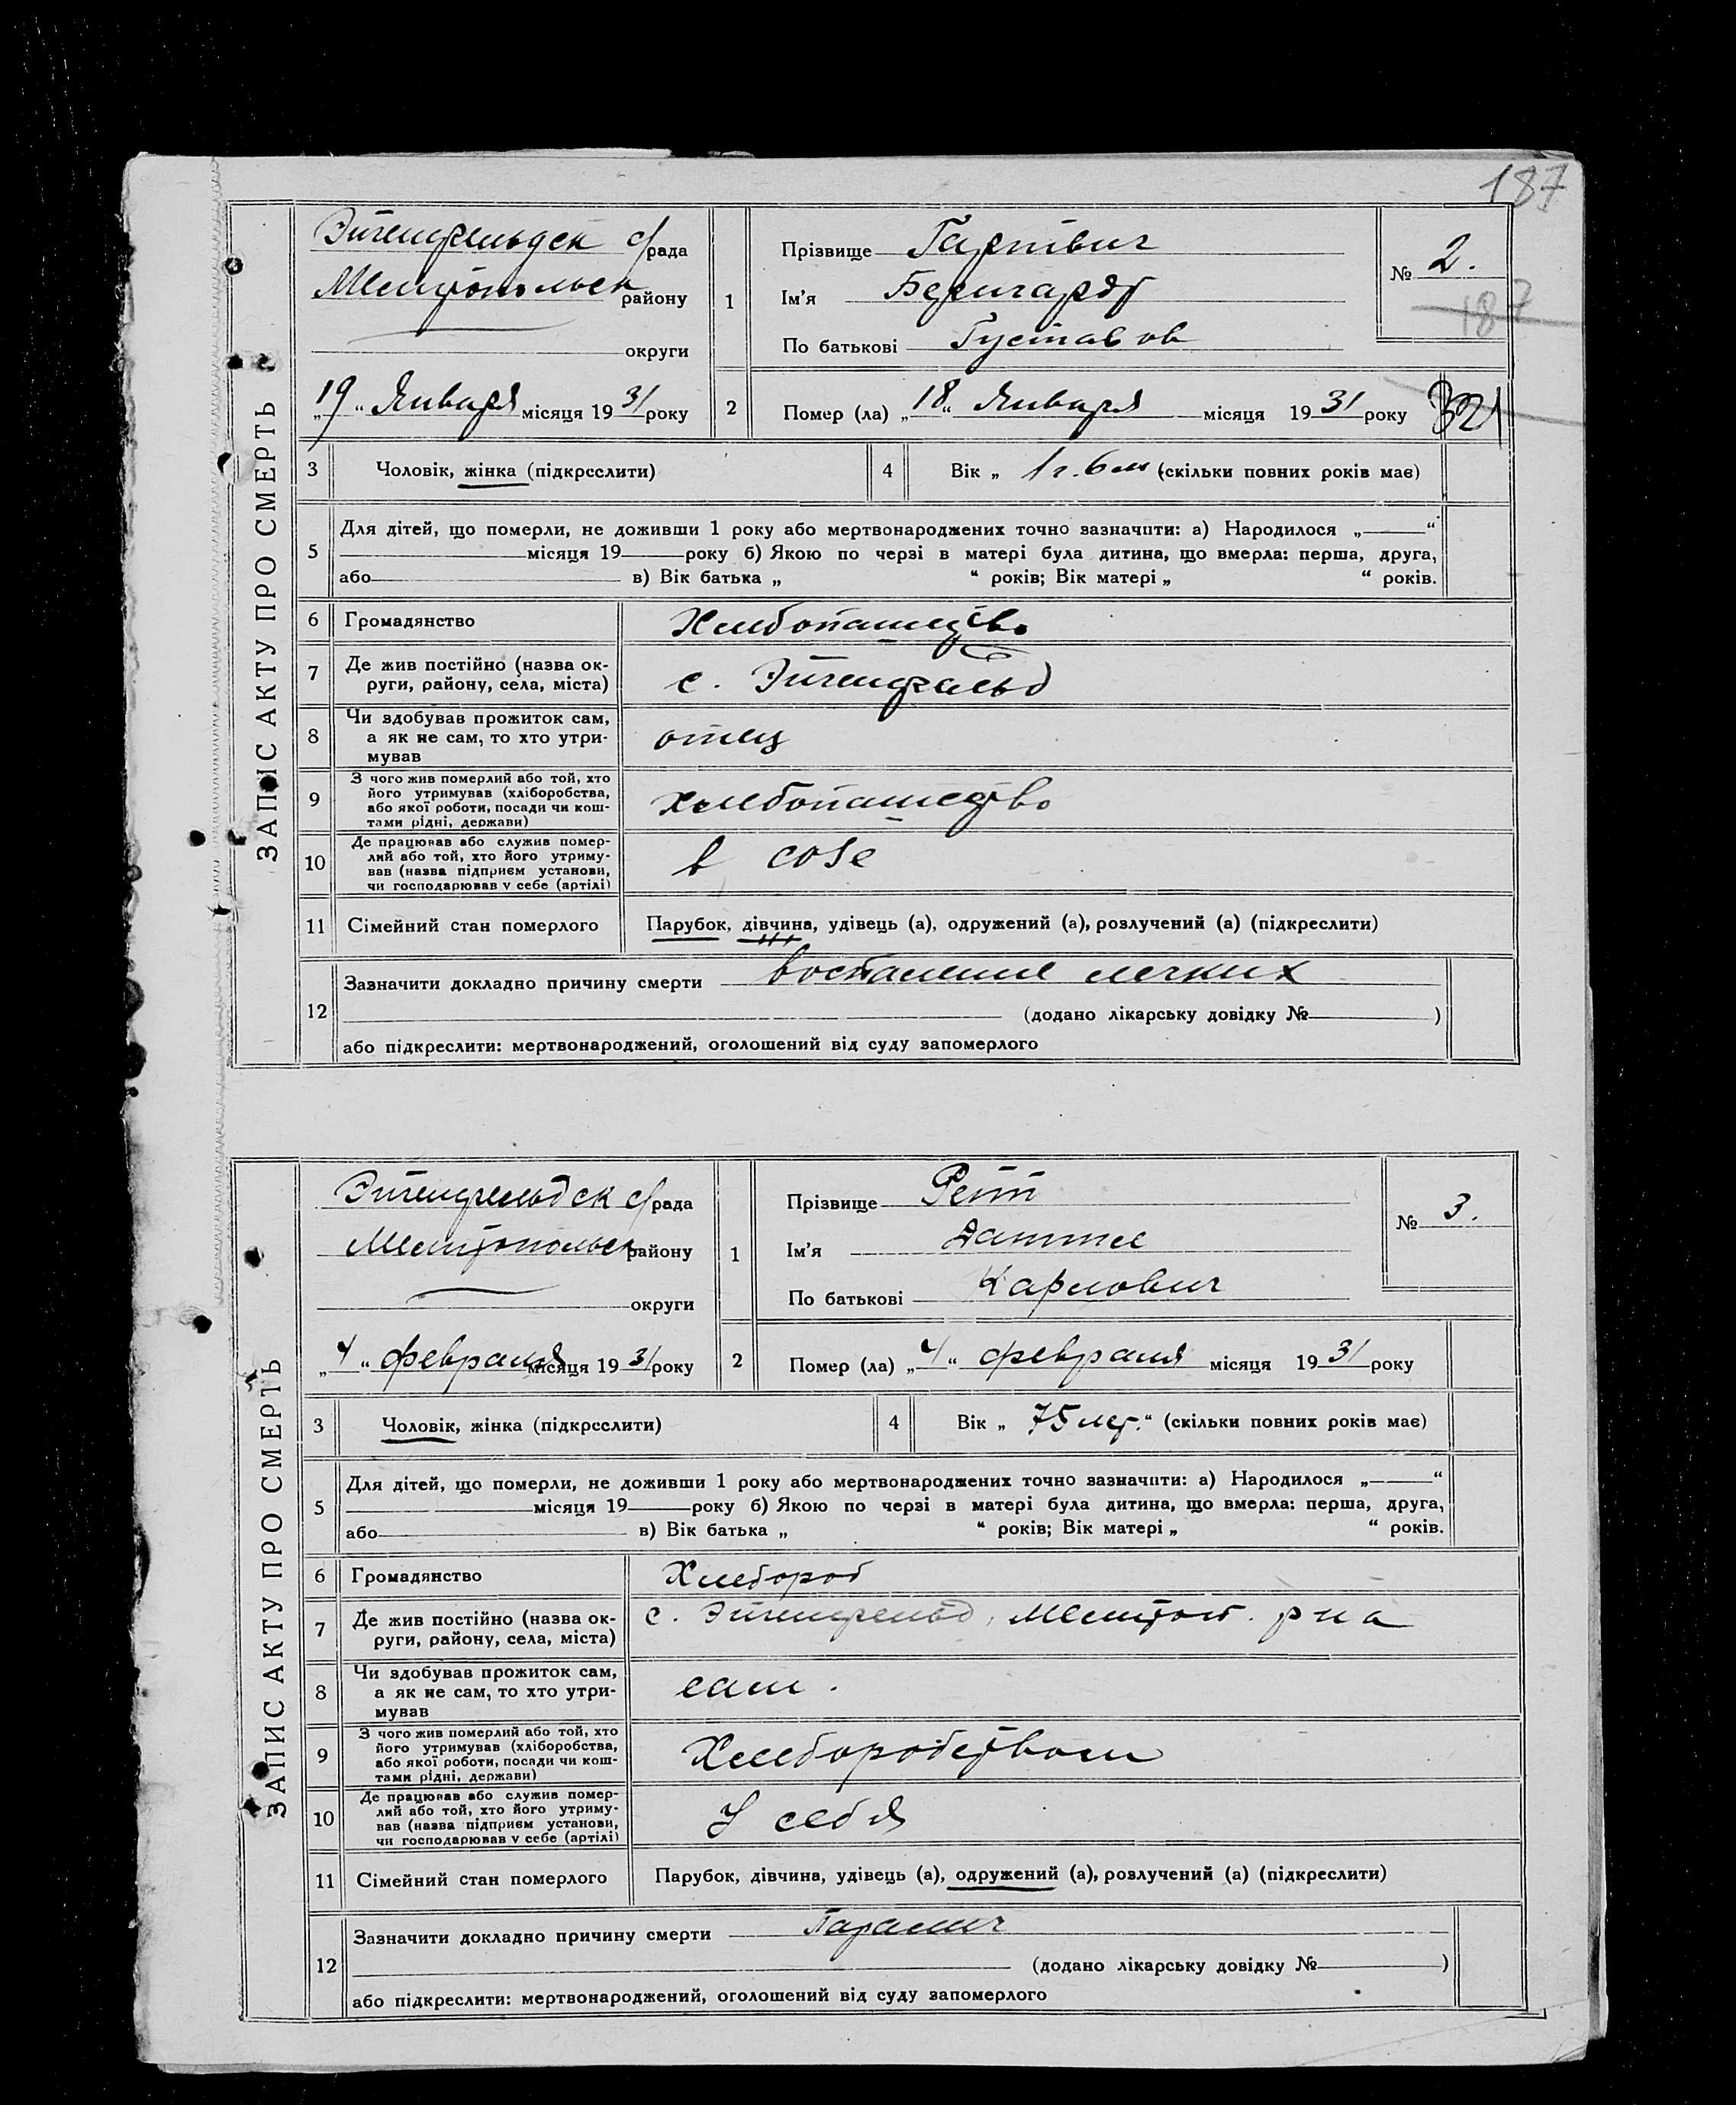 187
ЗАПИС АКТУ ПРО СМЕРТЬ
Эйгенфельдск с/рада
Мелитопольск району
округи
„19“ Января місяця 1931 року
1
Прізвище Гартвиг
Ім'я Бернгардт
По батькові Густавов
№ 2.
187
2
Помер (ла) „18“ Января місяця 1931 року
321
3 Чоловік, жінка (підкреслити)
4 Вік „ 1 г. 6 м (скільки повних років має)
5 Для дітей, що померли, не доживши 1 року або мертвонароджених точно зазначити: а) Народилося „ “
місяця 19 року б) Якою по черзі в матері була дитина, що вмерла: перша, друга,
або в) Вік батька „ “ років; Вік матері „ “ років.
6 Громадянство Хлебопашество
7 Де жив постійно (назва ок-
руги, району, села, міста) с. Эйгенфельд
8 Чи здобував прожиток сам,
а як не сам, то хто утри-
мував отец
9 З чого жив померлий або той, хто
його утримував (хліборобства,
або якої роботи, посади чи кош-
тами рідні, держави) хлебопашество
10 Де працював або служив помер-
лий або той, хто його утриму-
вав (назва підприєм установи,
чи господарював у себе (артілі) в созе
11 Сімейний стан померлого Парубок, дівчина, удівець (а), одружений (а), розлучений (а) (підкреслити)
12 Зазначити докладно причину смерти воспаление легких
(додано лікарську довідку № )
або підкреслити: мертвонароджений, оголошений від суду запомерлого
ЗАПИС АКТУ ПРО СМЕРТЬ
Эйгенфельдск с/рада
Мелитопольск району
округи
„4“ февраля місяця 1931 року
1
Прізвище Репп
Ім'я
По батькові Карлович
№ 3.
2
Помер (ла) „4“ февраля місяця 1931 року
3 Чоловік, жінка (підкреслити)
4 Вік „ 75 лет.“ (скільки повних років має)
5 Для дітей, що померли, не доживши 1 року або мертвонароджених точно зазначити: а) Народилося „ “
місяця 19 року б) Якою по черзі в матері була дитина, що вмерла: перша, друга,
або в) Вік батька „ “ років; Вік матері „ “ років.
6 Громадянство Хлебороб
7 Де жив постійно (назва ок-
руги, району, села, міста) с. Эйгенфельд, Мелитоп. р на
8 Чи здобував прожиток сам,
а як не сам, то хто утри-
мував сам.
9 З чого жив померлий або той, хто
його утримував (хліборобства,
або якої роботи, посади чи кош-
тами рідні, держави) Хлеборобством
10 Де працював або служив помер-
лий або той, хто його утриму-
вав (назва підприєм установи,
чи господарював у себе (артілі) У себя
11 Сімейний стан померлого Парубок, дівчина, удівець (а), одружений (а), розлучений (а) (підкреслити)
12 Зазначити докладно причину смерти Паралич
(додано лікарську довідку № )
або підкреслити: мертвонароджений, оголошений від суду запомерлого